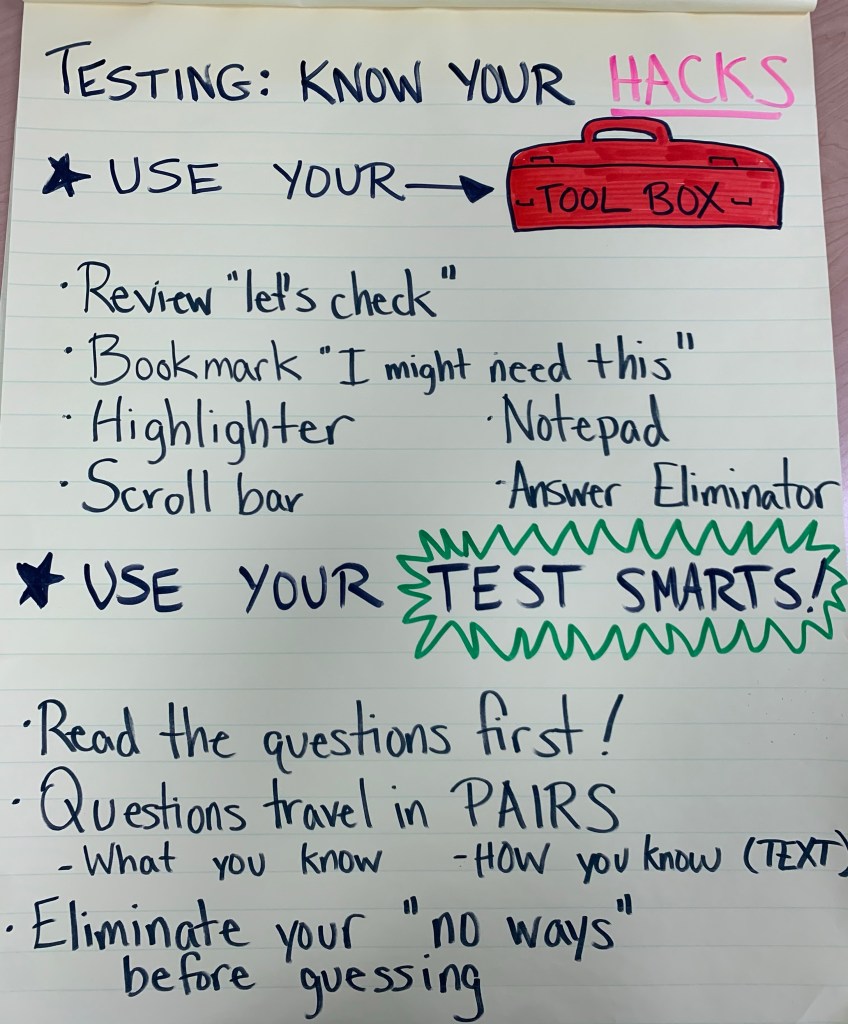 TESTING: KNOW YOUR HACKS
★ USE YOUR → TOOL BOX
· Review "let's check"
· Bookmark "I might need this"
· Highlighter · Notepad
· Scroll bar · Answer Eliminator
★ USE YOUR TEST SMARTS!
· Read the questions first!
· Questions travel in PAIRS
- What you know - HOW you know (TEXT)
· Eliminate your "no ways"
before guessing